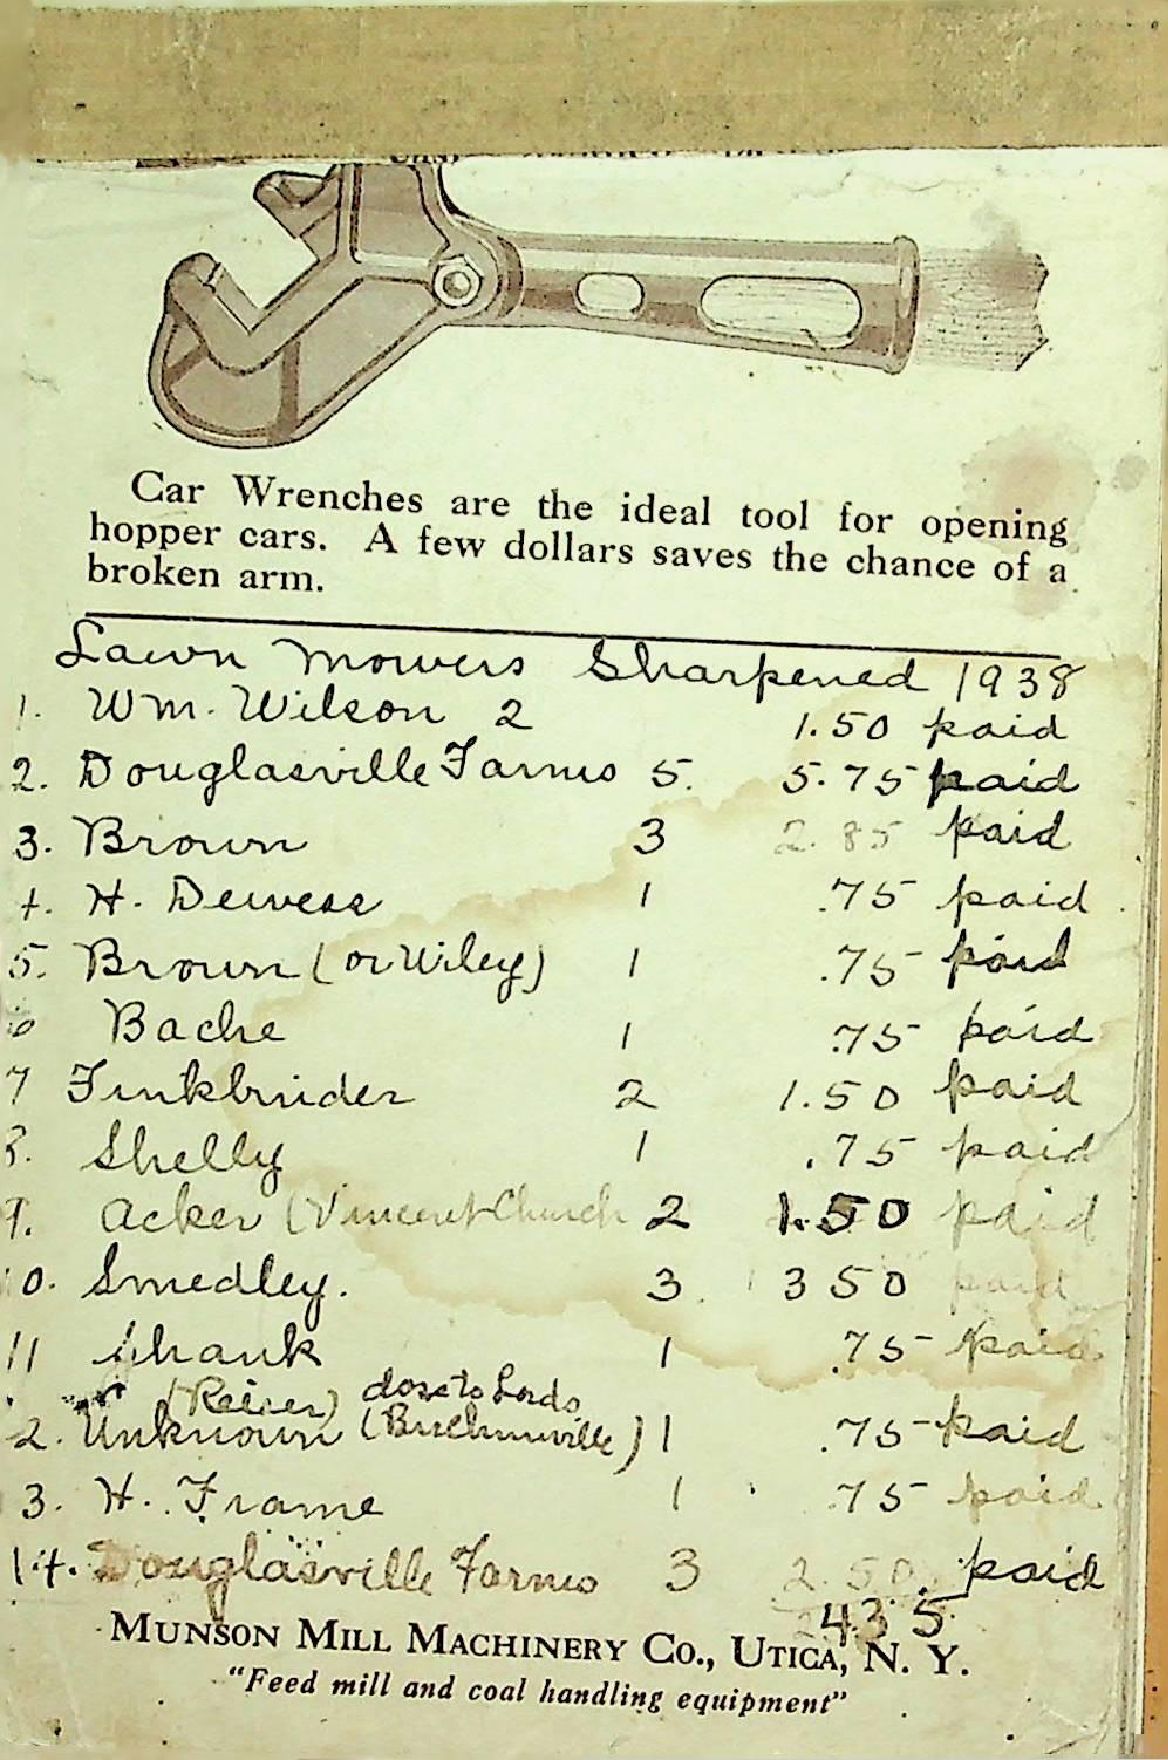 Car Wrenches are the ideal tool for opening
hopper cars. A few dollars saves the chance of a
broken arm.
Lawn Mowers Sharpened 1938
1. Wm. Wilson 2 1.50 paid
2. Douglasville Farms 5. 5.75 paid
3. Brown 3 2.85 paid
4. H. Dewees 1 .75 paid
5. Brown (or Wiley) 1 .75 paid
6 Bache 1 .75 paid
7 Funkbruider 2 1.50 paid
8. Shelly 1 .75 paid
9. Acker (Vincent Church 2 1.50 paid
10. Smedley. 3. 3 50 paid
11 Shank 1 .75 paid
(Reiser) close to Lords
2. Unknown (Bucktownville) 1 .75 paid
3. H. Frame 1 .75 paid
14. Douglasville Farms 3 2.50. paid
435
MUNSON MILL MACHINERY CO., UTICA, N. Y.
"Feed mill and coal handling equipment"